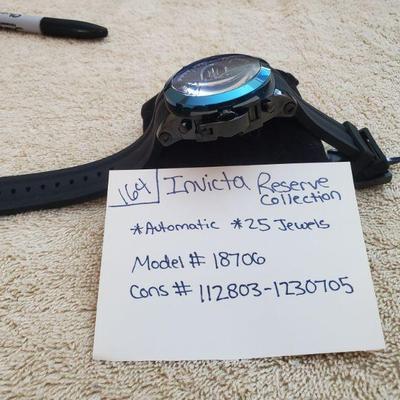 164 Invicta Reserve
Collection
*Automatic *25 Jewels
Model# 18706
Cons# 112803-1230705